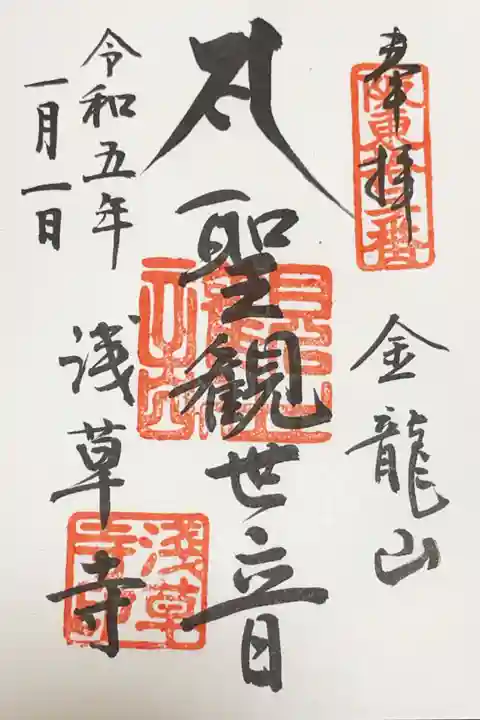 奉拝
阪東拾三番
金龍山
聖観世音
令和五年
一月一日
浅草寺
浅草寺